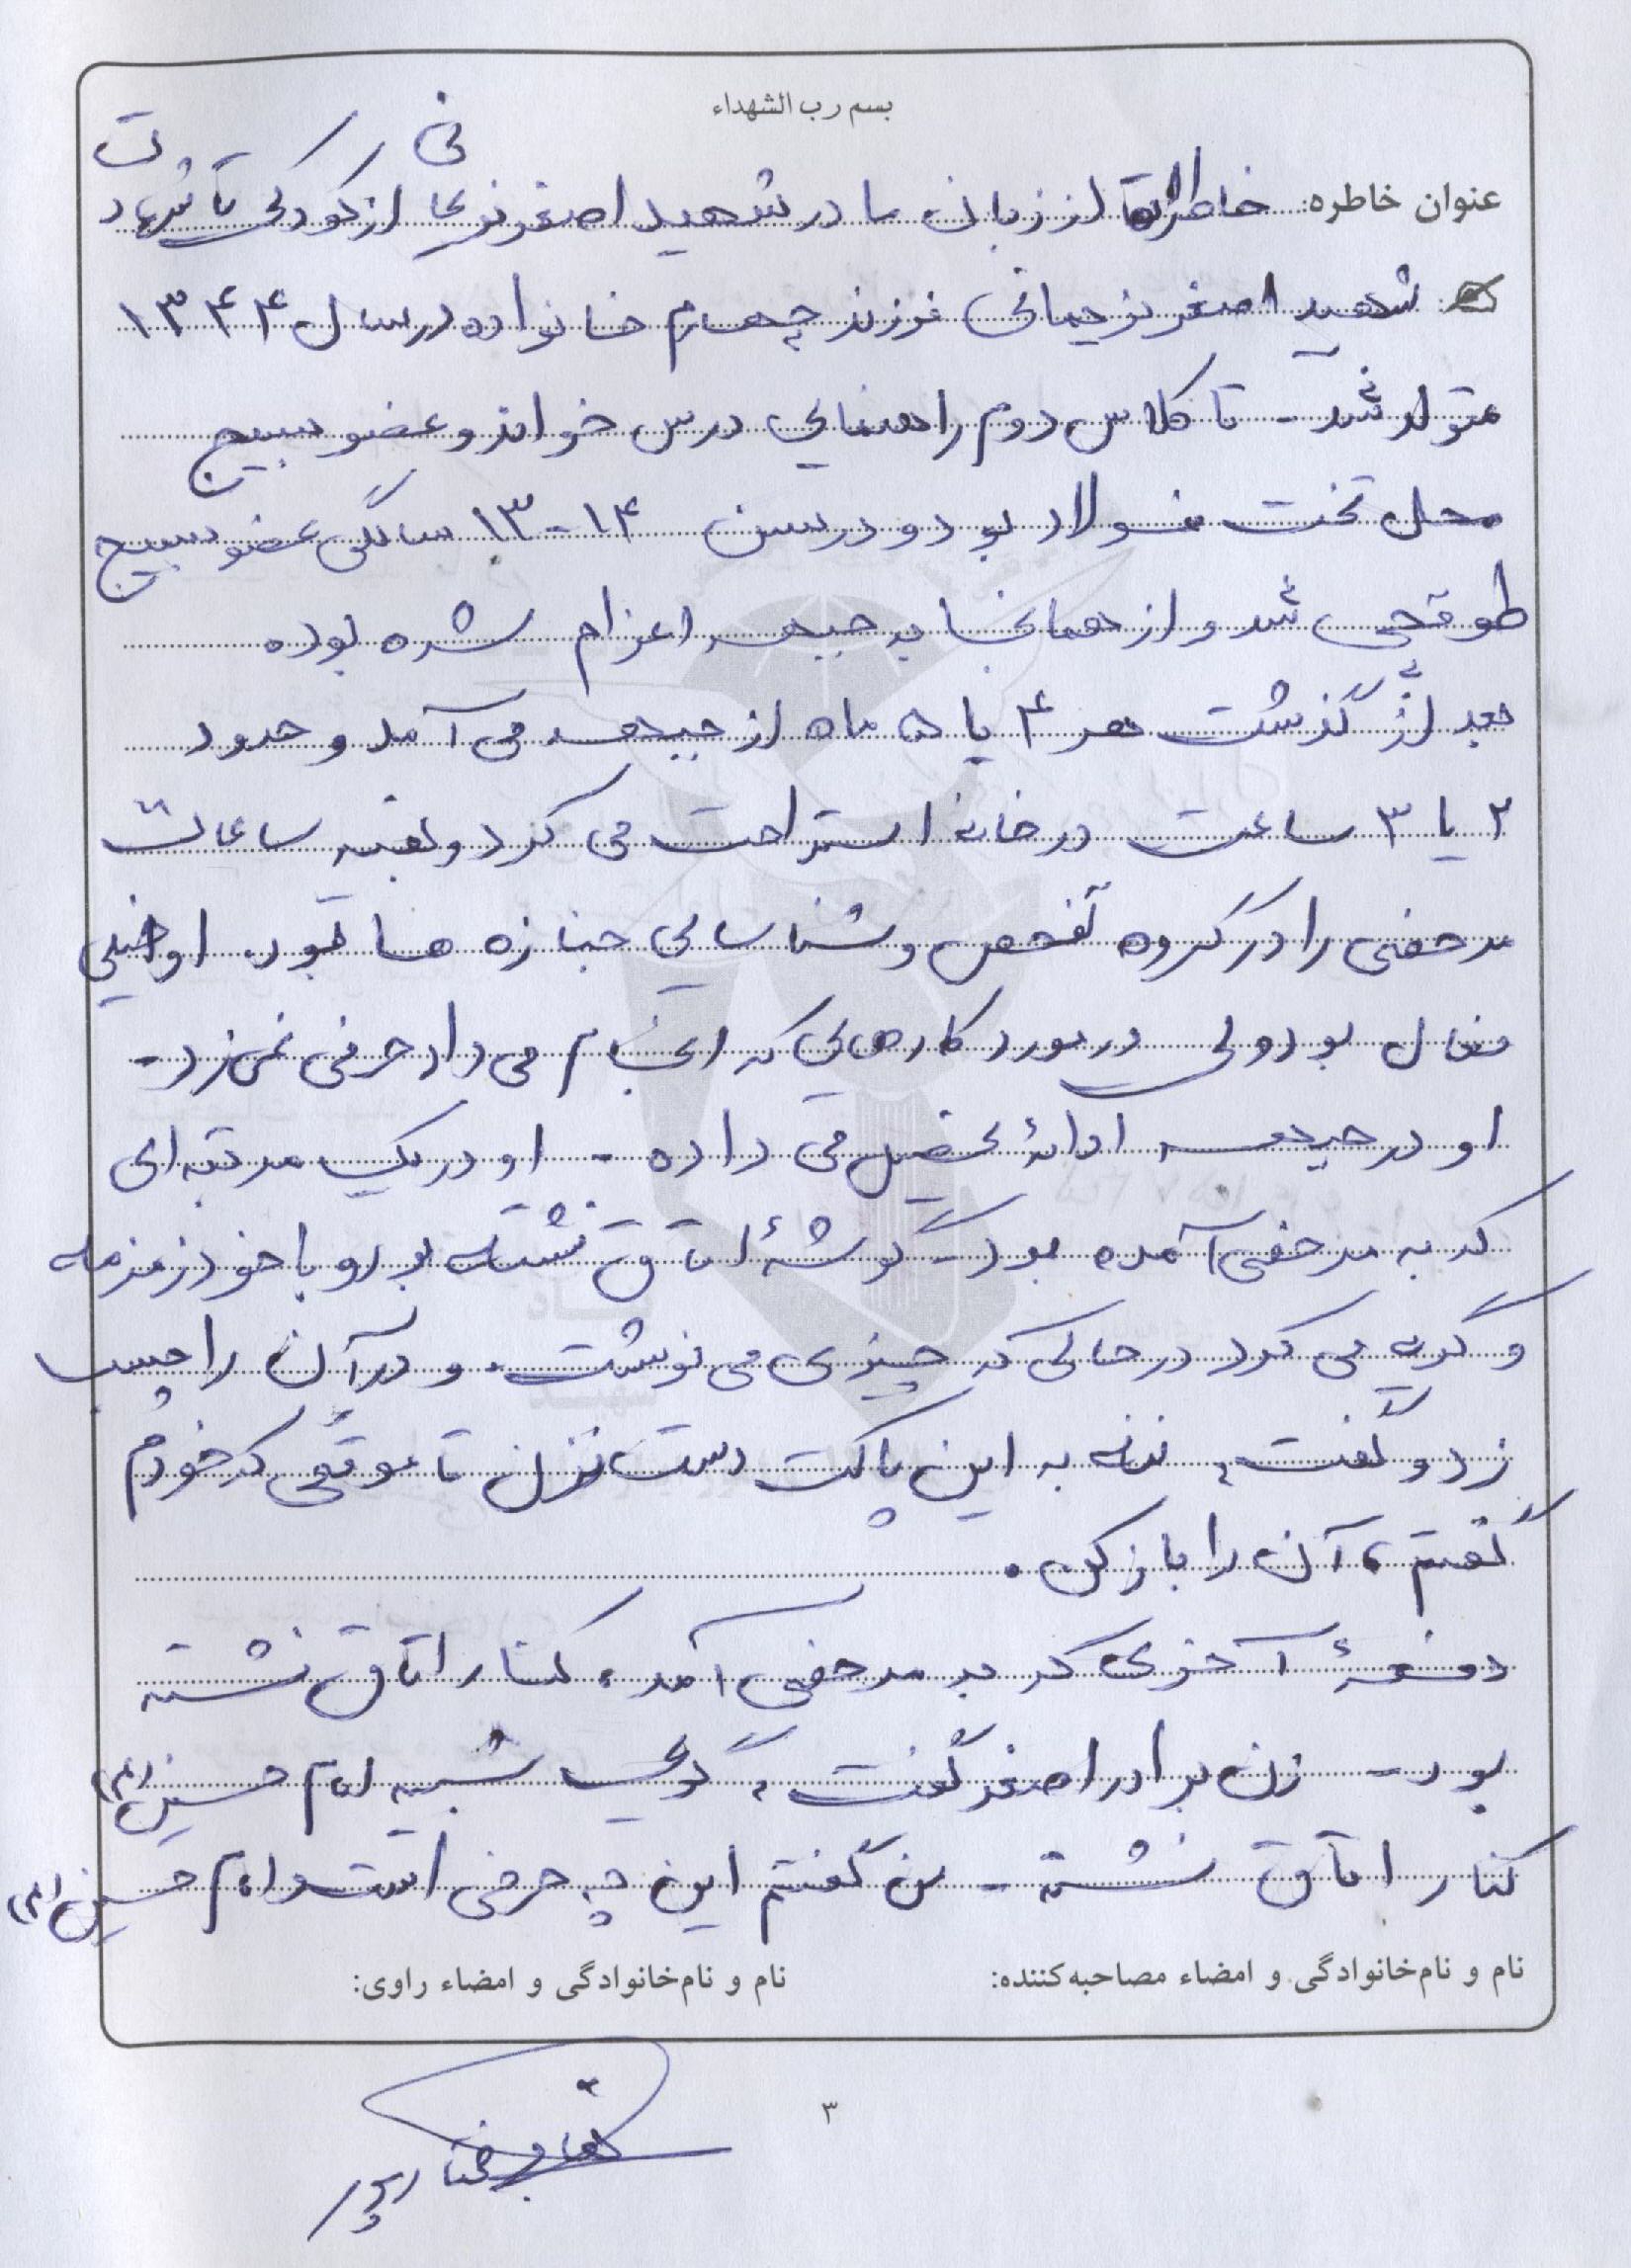 بسم رب الشهداء
عنوان خاطره: خاطرات از زبان مادر شهید اصغر نوریجانی از کودکی تا شهادت
شهید اصغر نوریجانی فرزند چهارم خانواده در سال ۱۳۴۴
متولد شد - تا کلاس دوم راهنمایی درس خواند و عضو بسیج
محل تخت فولاد بود و در سن ۱۴-۱۳ سالگی عضو بسیج
طوقچی شد و از همانجا به جبهه اعزام شده بوده
بعد از گذشت هر ۴ یا ۵ ماه از جبهه می آمد و حدود
۲ یا ۳ ساعت در خانه استراحت می کرد و بقیه ساعات
مرخصی را در گروه تفحص و شناسایی جنازه ها بود. او خیلی
فعال بود ولی در مورد کارهایی که انجام می داد حرفی نمی زد -
او در جبهه ادامۀ تحصیل می داده - او در یک مرتبه ای
که به مرخصی آمده بود گوشۀ اتاق نشسته بود و با خود زمزمه
و گریه می کرد در حالی که چیزی می نوشت. و در آن را چسب
زد و گفت، ننه به این پاکت دست نزن تا موقعی که خودم
گفتم، آن را باز کن.
دفعۀ آخری که به مرخصی آمد، کنار اتاق نشسته
بود - زن برادر اصغر گفت، گویی شبیه امام حسین (ع)
کنار اتاق نشسته - من گفتم این چه حرفی است امام حسین (ع)
نام و نام‌خانوادگی و امضاء مصاحبه‌کننده: نام و نام‌خانوادگی و امضاء راوی:
۳